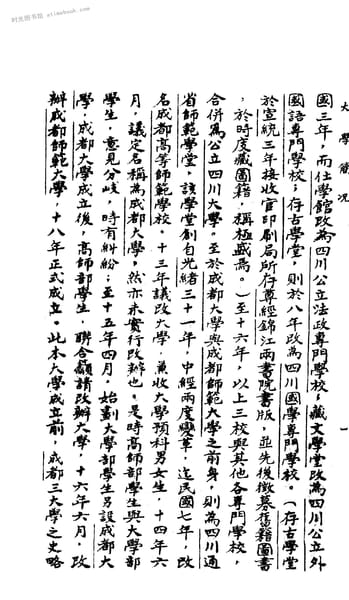 时光图书馆 etimebook.com
大學簡况
一
國三年，而仕學館改為四川公立法政專門學校；藏文學堂改為四川公立外
國語專門學校；存古學堂，則於八年改為四川國學專門學校。（存古學堂
於宣統三年接收官印刷局所存尊經錦江兩書院書版，並先後徵募舊籍圖書
，於時度藏圖籍，稱極盛焉。）至十六年，以上三校與其他各專門學校，
合併為公立四川大學。至於成都大學與成都師範大學之前身，則為四川通
省師範學堂，該學堂創自光緒三十一年，中經兩度變革，迄民國七年，改
名成都高等師範學校。十三年議改大學，兼收大學預科男女生。十四年六
月，議定名稱為成都大學，然亦未實行改辦也。是時高師部學生與大學部
學生，意見分岐，時有糾紛；至十五年四月，始劃大學部學生另設成都大
學。成都大學成立後，高師部學生，聯合籲請改辦大學，十六年六月，改
辦成都師範大學，十八年正式成立。此本大學成立前，成都三大學之史略